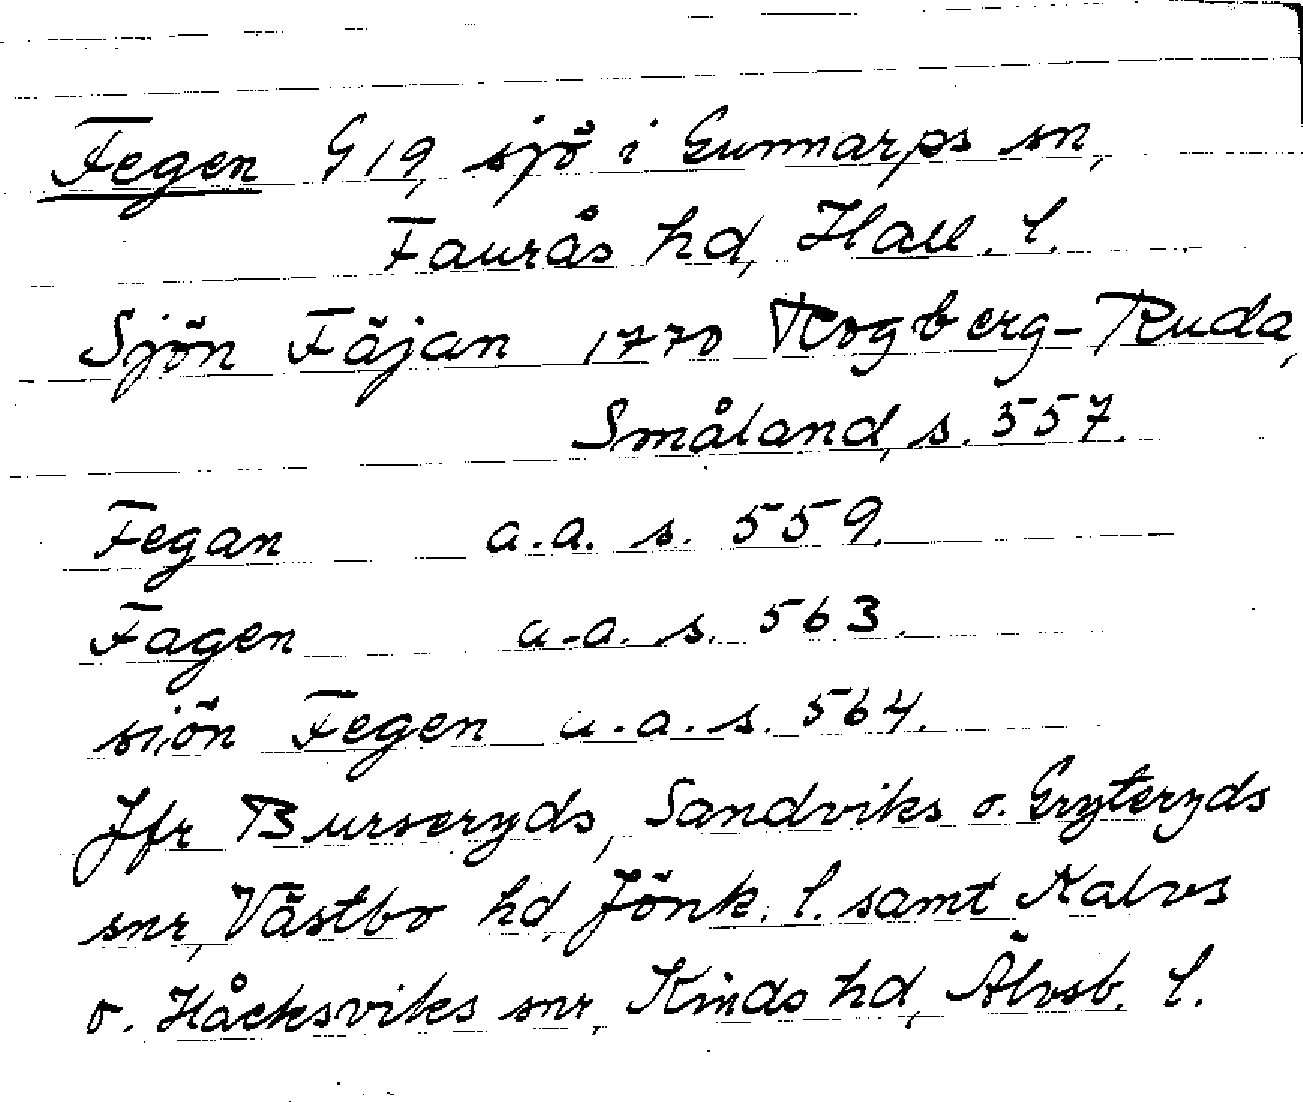 Fegen G19, sjö i Gunnarps sn,
Faurås hd, Hall. l.
Sjön Fäjan 1770 Rogberg-Ruda,
Småland, s. 557.
Fegan a.a. s. 559.
Fagen a.a. s. 563.
siön Fegen a.a. s. 564.
Jfr Burseryds, Sandviks o. Gryteryds
snr, Västbo hd, Jönk. l. samt Kalvs
o. Håcksviks snr, Kinds hd, Älvsb. l.